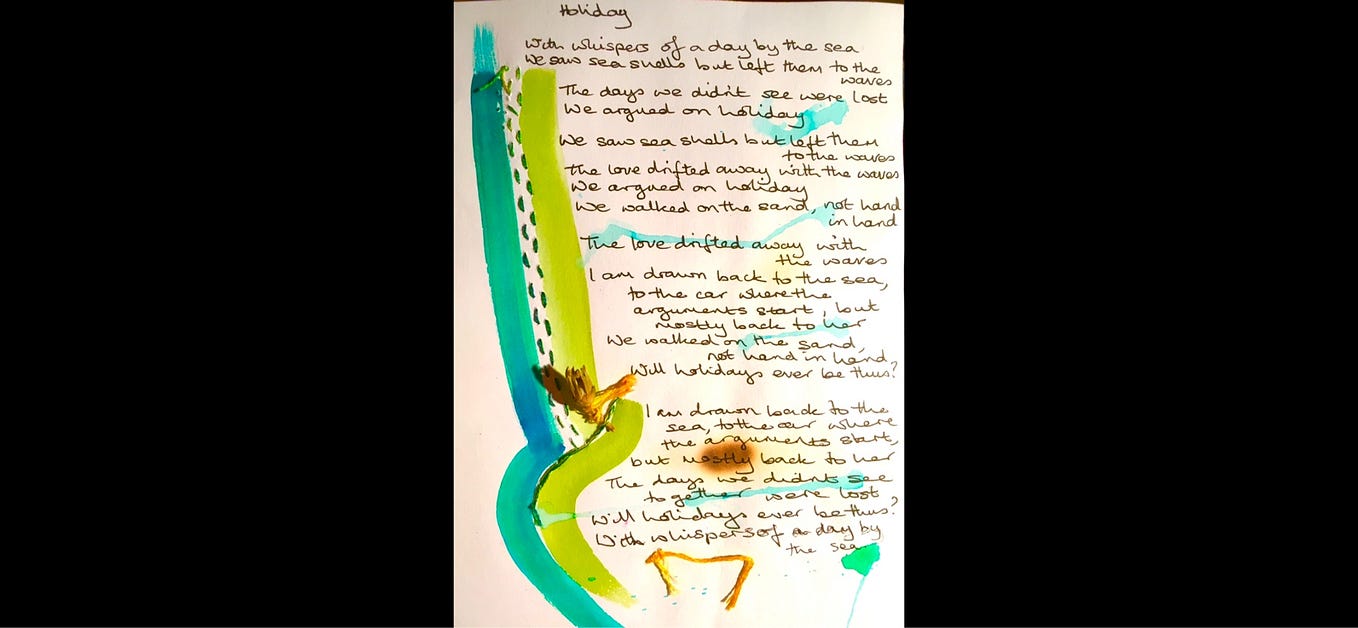 Holiday
With whispers of a day by the sea
We saw sea shells but left them to the
waves
The days we didn't see were lost
We argued on holiday
We saw sea shells but left them
to the waves
The love drifted away with the waves
We argued on holiday
We walked on the sand, not hand
in hand
The love drifted away with
the waves
I am drawn back to the sea,
to the car where the
arguments start, but
mostly back to her
We walked on the sand,
not hand in hand,
Will holidays ever be thus?
I am drawn back to the
sea, to the car where
the arguments start,
but mostly back to her
The days we didn't see
together were lost
Will holidays ever be thus?
With whispers of a day by
the sea